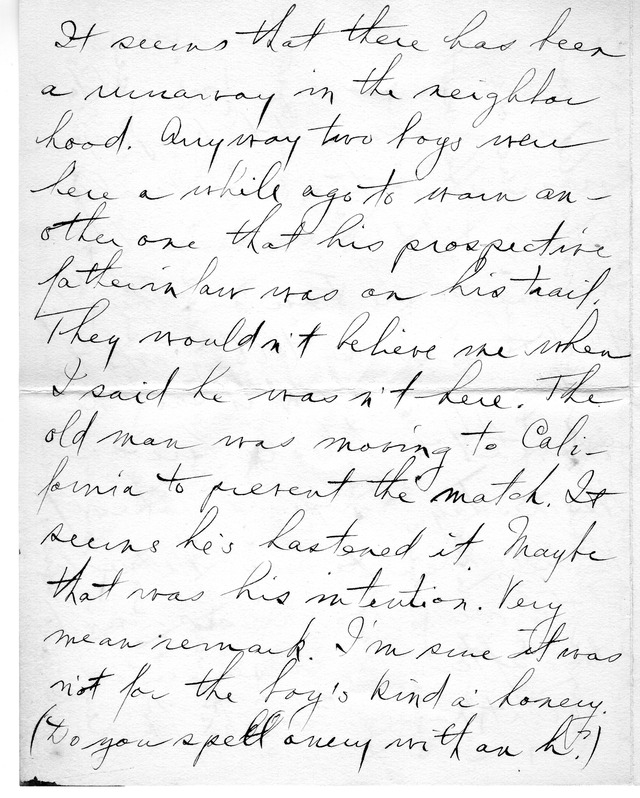 It seems that there has been
a runaway in the neighbor
hood. Anyway two boys were
here a while ago to warn an-
other one that his prospective
fatherinlaw was on his trail.
They wouldn't believe me when
I said he was n't here. The
old man was moving to Cali-
fornia to prevent the match. It
seems he's hastened it. Maybe
that was his intention. Very
mean remark. I'm sure it was
not for the boy's kind a' honery.
(Do you spell onery with an h?)